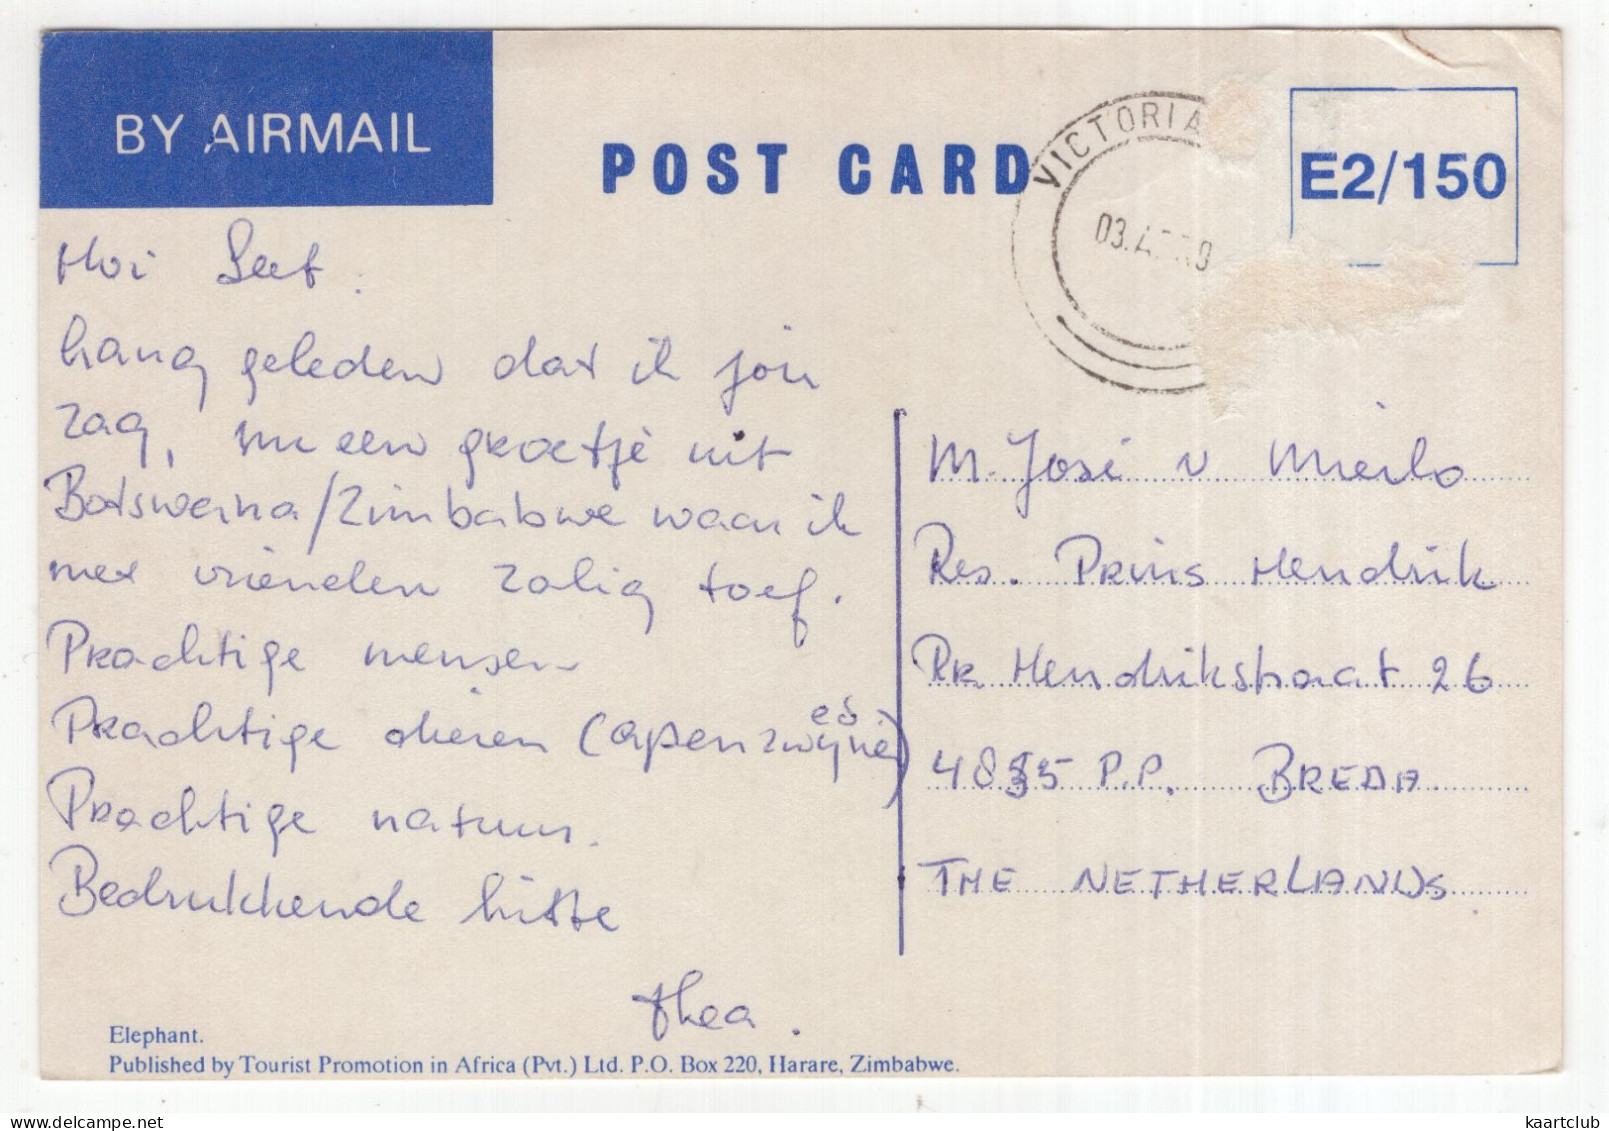 BY AIRMAIL
POST CARD
VICTORIA
E2/150
Hoi
Lang geleden dat ik jou
zag, nu een groetje uit
Botswana/Zimbabwe waar ik
met vrienden zalig toef.
Prachtige mensen
Prachtige dieren (apen zwijnen)
Prachtige natuur.
Bedrukkende hitte
thea.
M. José v Mierlo
Res. Prins Hendrik
Pr Hendrikstraat 26
4835 P.P. BREDA
THE NETHERLANDS.
Elephant.
Published by Tourist Promotion in Africa (Pvt.) Ltd. P.O. Box 220, Harare, Zimbabwe.
kaartclub